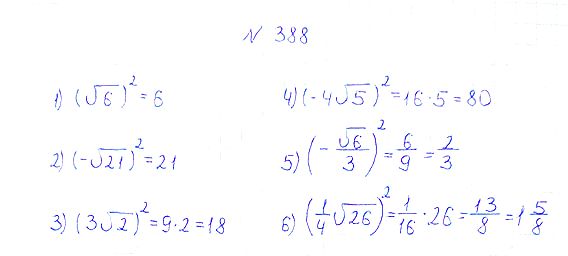 № 388
1) (√6)² = 6
2) (-√21)² = 21
3) (3√2)² = 9·2 = 18
4) (-4√5)² = 16·5 = 80
5) (-√6/3)² = 6/9 = 2/3
6) (1/4 √26)² = 1/16 · 26 = 13/8 = 1 5/8